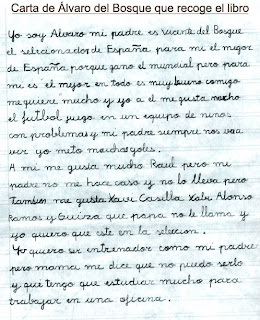 Carta de Álvaro del Bosque que recoge el libro
Yo soy Alvaro mi padre es vicente del Bosque
el seleccionador de España para mi el mejor
de España porque gano el mundial pero para
mi es el mejor en todo es muy bueno comigo
me quiere mucho y yo a el me gusta mucho
el futbol juego en un equipo de niños
con problemas y mi padre siempre nos vaa
ver yo meto muchos goles.
A mi me gusta mucho Raul pero mi
padre no me hace caso y no lo lleva pero
Tambien me gusta Xavi Casilla Xabi Alonso
Ramos y Guiza que papa no le llama y
yo quiero que este en la seleccion.
Yo quiero ser entrenador como mi padre
pero mama me dice que no puedo serlo
y que tengo que estudiar mucho para
trabajar en una oficina.